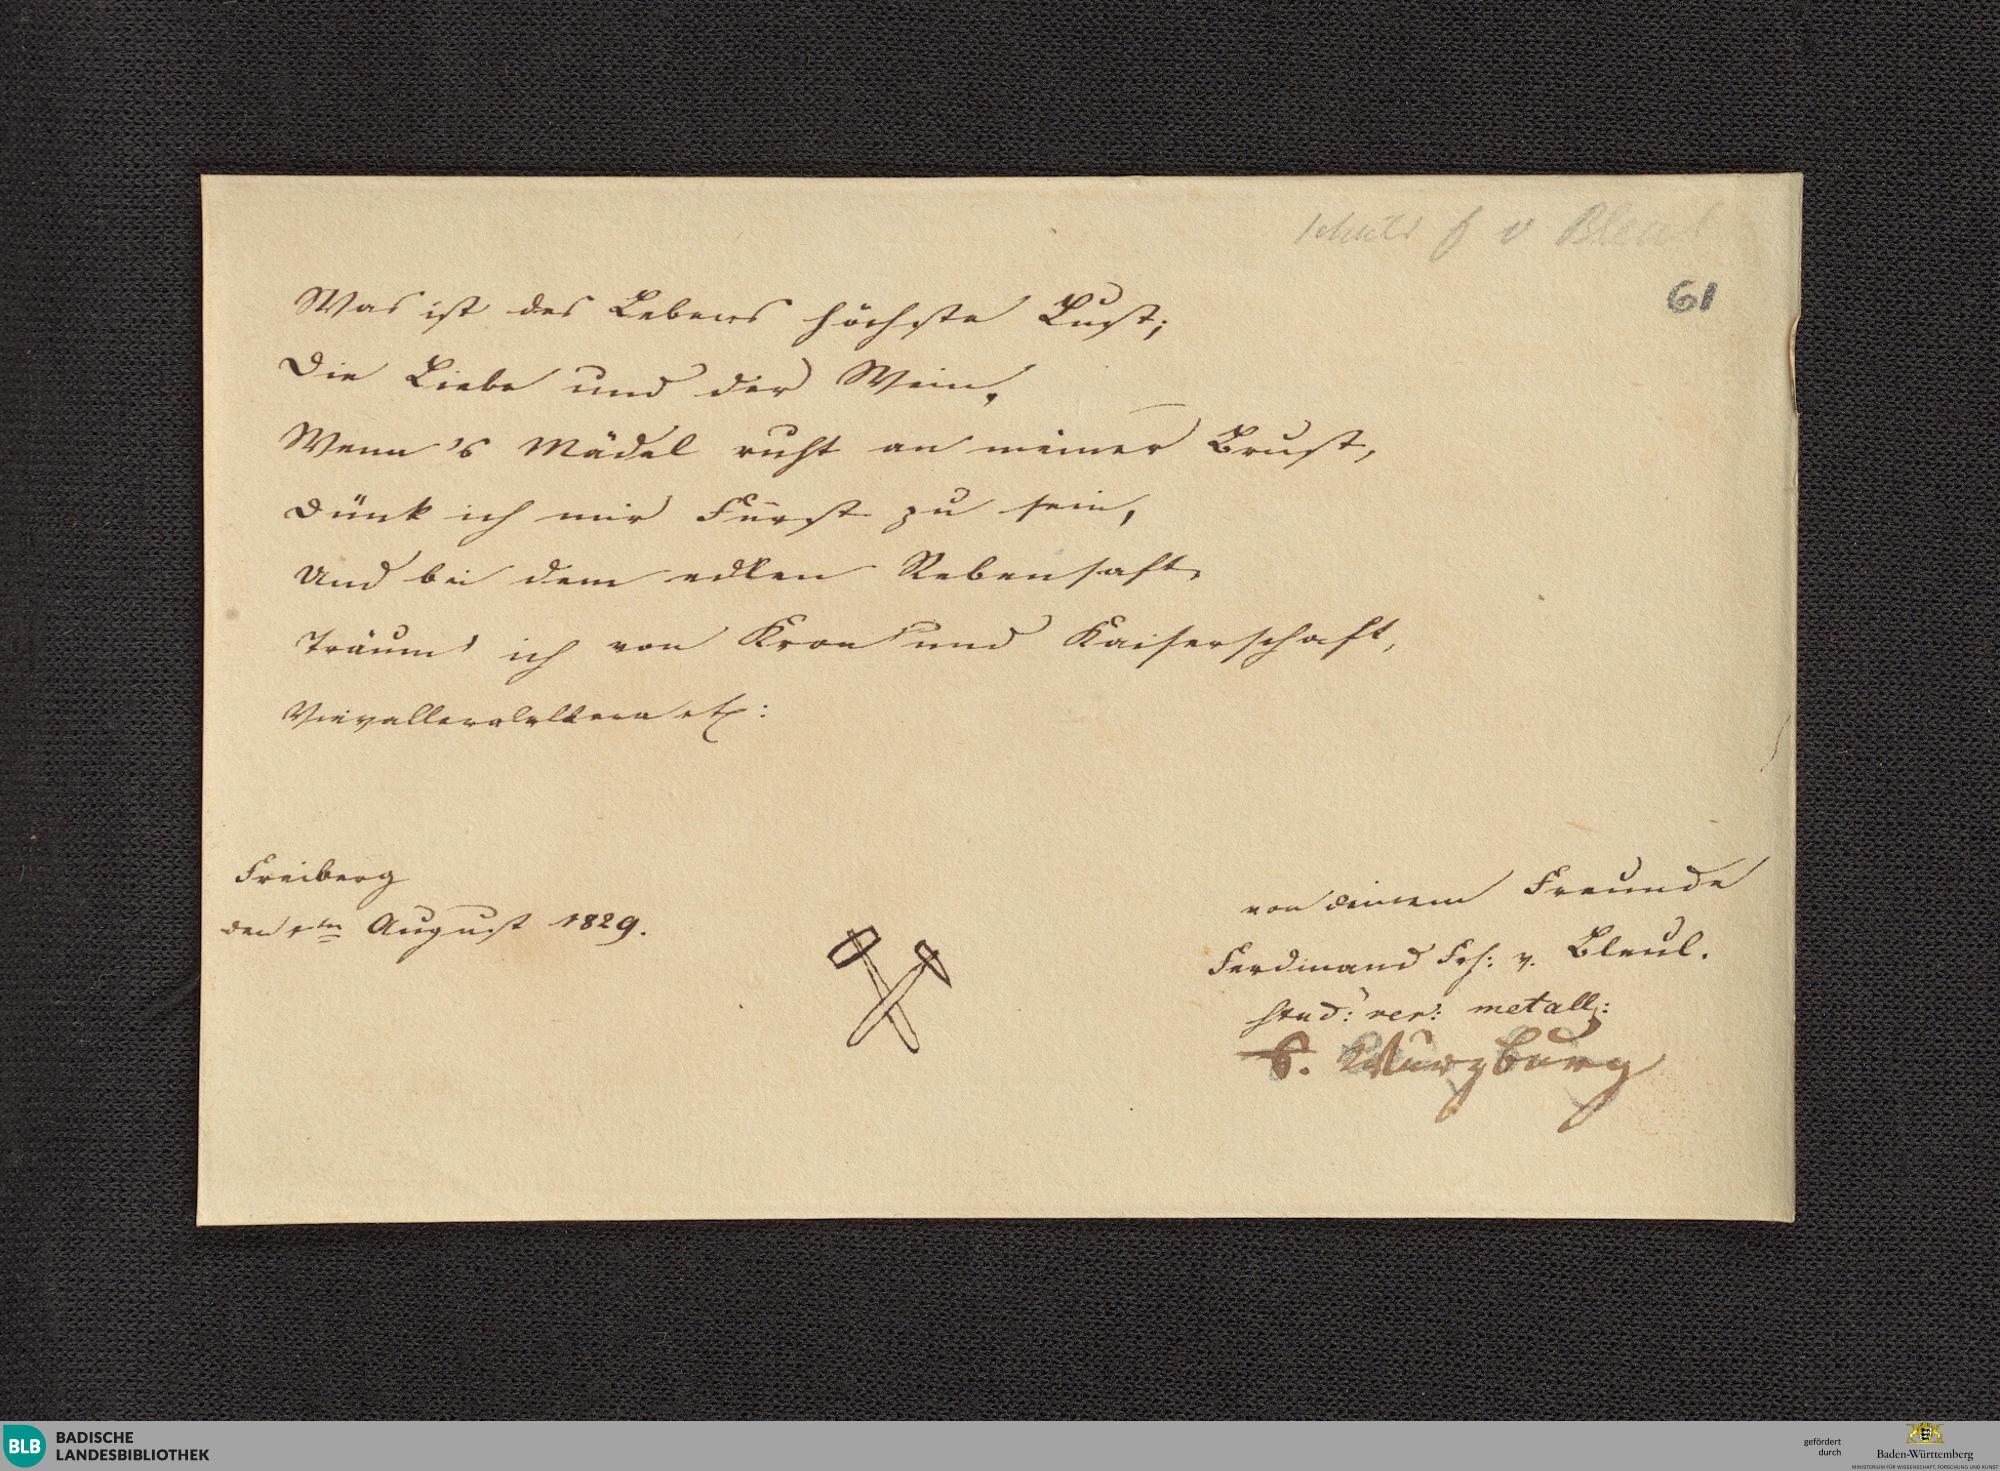 v Bleul
61
Was ist des Lebens höchste Lust;
Die Liebe und der Wein,
Wenn's Mädel ruht an meiner Brust,
Dünk ich mir Fürst zu sein,
Und bei dem edlen Rebensaft,
Träum' ich von Kron' und Kaiserschaft,
Freiberg
den August 1829.
von deinem Freunde
Ferdinand Frh: v. Bleul.
stud: rer: metall:
Wurzburg
BLB BADISCHE
LANDESBIBLIOTHEK
gefördert
durch
Baden-Württemberg
MINISTERIUM FÜR WISSENSCHAFT, FORSCHUNG UND KUNST